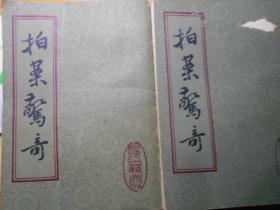 拍案驚奇
拍案驚奇